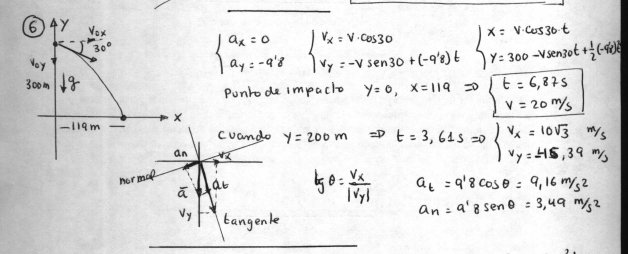 6
Y
V0x
30°
V0y
300m
g
X
119m
ax = 0
ay = -9'8
Vx = V·cos30
Vy = -V sen30 + (-9'8) t
X = V·cos30·t
Y = 300 - V sen30t + 1/2 (-9'8)t²
Punto de impacto Y=0, X=119 => t = 6,87s
V = 20 m/s
Cuando Y = 200 m => t = 3,61s => Vx = 10√3 m/s
Vy = -45,39 m/s
an
Vx
normal
a
at
Vy
tangente
tg θ = Vx/|Vy|
at = 9'8 cos θ = 9,16 m/s2
an = 9'8 sen θ = 3,49 m/s2